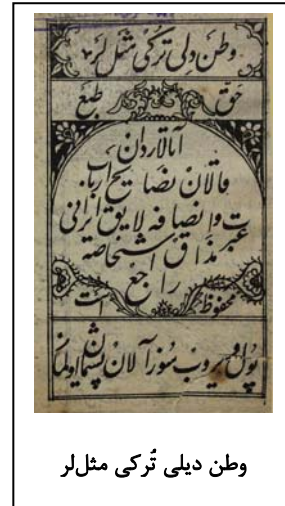 وطن دلی ترکی مثل لر
حق طبع
آتالاردان
قالان نصایح ارباب
عبرت و انصافه لایق
مذاق اشخاصنه
راجع
محفوظ است
پول ویروب سوز آلان پشیمان اولماز
وطن دیلی تُرکی مثل‌لر